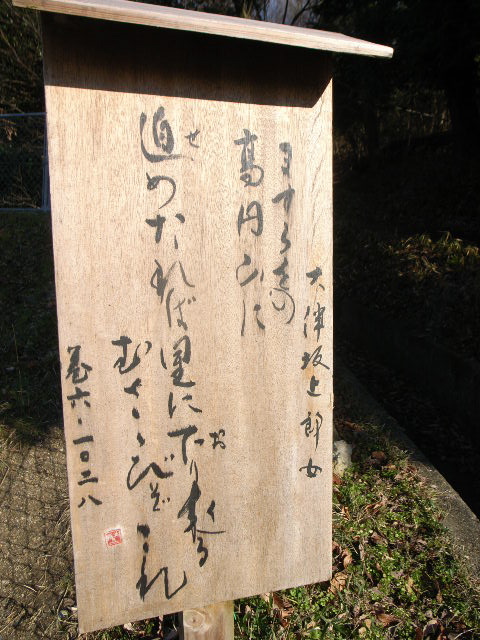 大伴坂上郎女
ますらをの
高円山に
迫めたれば里に下り来る
せ
お
く
むささびぞこれ
巻六・一〇二八